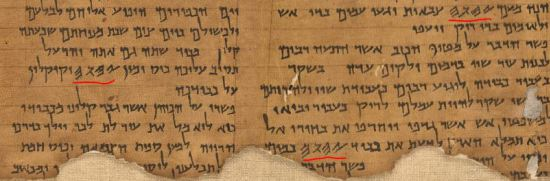 מעם 𐤉𐤄𐤅𐤄 צבאות יגעו עמים בדי אש
ולאומים בדי ריק ייעפו
פשר הדבר על מטיף הכזב אשר התעה רבים
לבנות עיר שוו בדמים ולקים עדה בשקר
בעבור כבודה לוגיע רבים בעבודת שוו ולהרותם
במעשי שקר להיות עמלם לריק בעבור יבואו
למשפטי אש אשר גדפו ויחרפו את בחירי אל
כיא תמלא הארץ לדעת את כבוד 𐤉𐤄𐤅𐤄 כמים
פשר הדבר
יום הכפורים הופיע אליהם לבלעם
ולכשילם ביום צום שבת מנוחתם שבעתה
קלון מכבוד שתה גם אתה והרעל
תסוב עליכה כוס ימין 𐤉𐤄𐤅𐤄 וקיקלון
על כבודכה
פשרו על הכוהן אשר גבר קלונו מכבודו
כיא לוא מל את עורלת לבו וילך בדרכי
הרויה למען ספות הצמאה וכוס חמת
תבלענו לוסיף ומכאוב